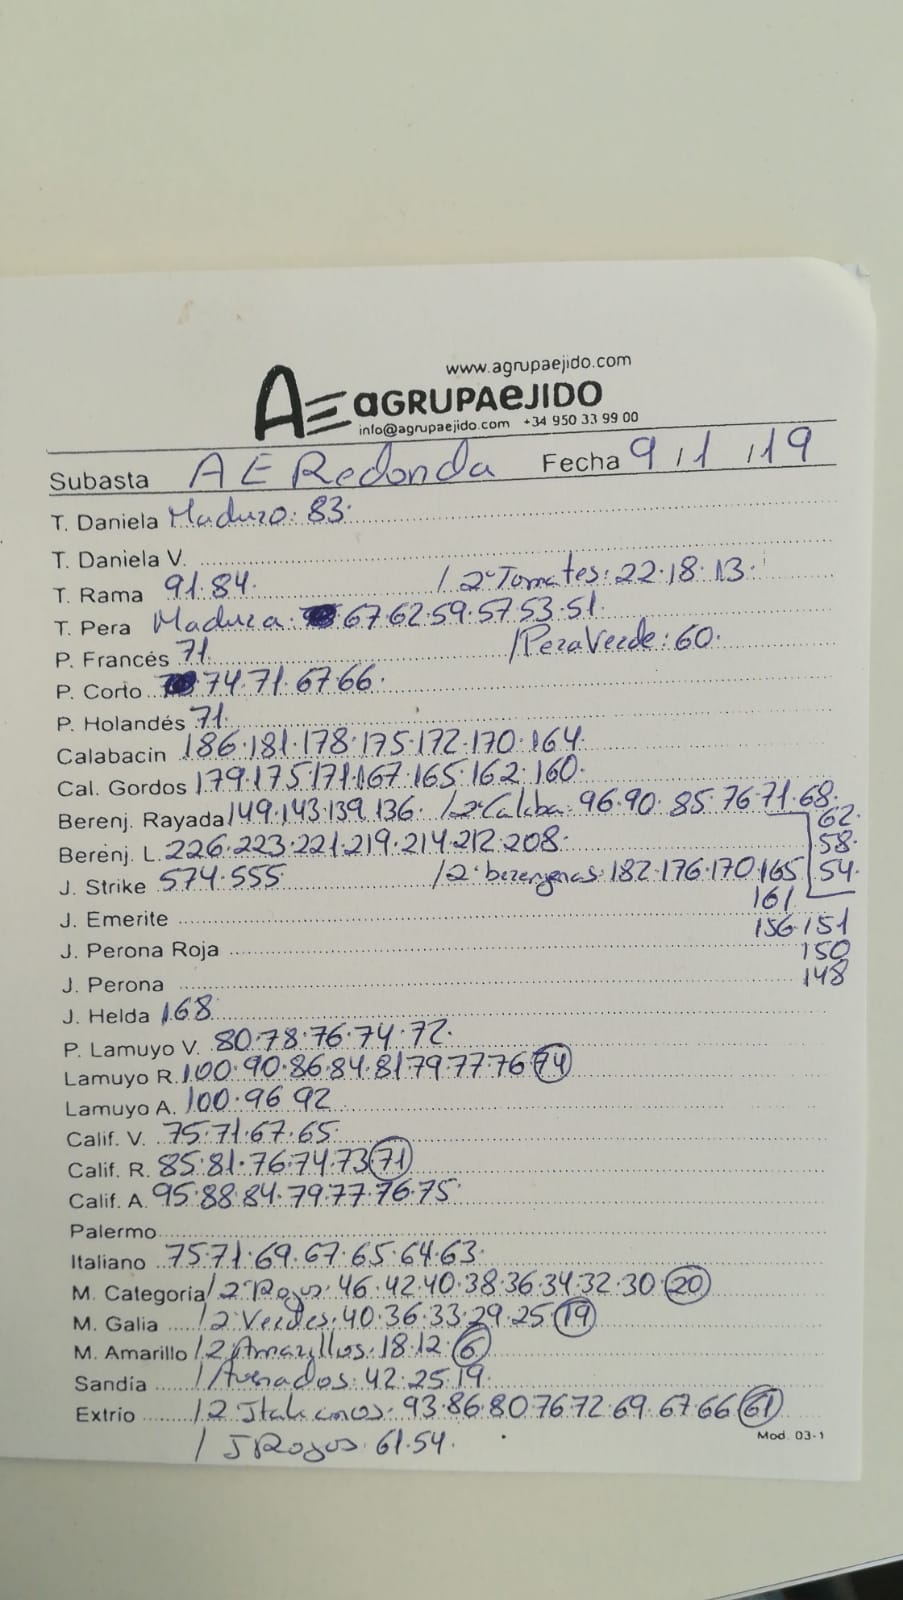 www.agrupaejido.com
AE aGRUPAeJIDO
info@agrupaejido.com +34 950 33 99 00
Subasta AE Redonda Fecha 9/1/19
T. Daniela Maduro: 83.
T. Daniela V.
T. Rama 91.84. / 2ª Tomates: 22.18.13.
T. Pera Madura: 67.62.59.57.53.51.
P. Francés 71. / Pera Verde: 60.
P. Corto 74.71.67.66.
P. Holandés 71.
Calabacin 186.181.178.175.172.170.164.
Cal. Gordos 179.175.171.167.165.162.160.
Berenj. Rayada 149.143.139.136. / 2ª Calaba: 96.90.85.76.71.68.
62.
Berenj. L. 226.223.221.219.214.212.208.
58.
J. Strike 574.555. / 2ª berengenas: 182.176.170.165
54.
161
J. Emerite
156.151
J. Perona Roja
150
J. Perona
148
J. Helda 168
P. Lamuyo V. 80.78.76.74.72.
Lamuyo R. 100.90.86.84.81.79.77.76 74
Lamuyo A. 100.96 92
Calif. V. 75.71.67.65.
Calif. R. 85.81.76.74.73 71
Calif. A. 95.88.84.79.77.76.75
Palermo
Italiano 75.71.69.67.65.64.63.
M. Categoría / 2ª Rojos: 46.42.40.38.36.34.32.30 20
M. Galia / 2 Verdes: 40.36.33.29.25 19
M. Amarillo / 2 Amarillos: 18.12. 6
Sandía / Averados: 42.25.19.
Extrio / 2 Italianos: 93.86.80.76.72.69.67.66 61
/ J Rojos: 61.54.
Mod. 03-1